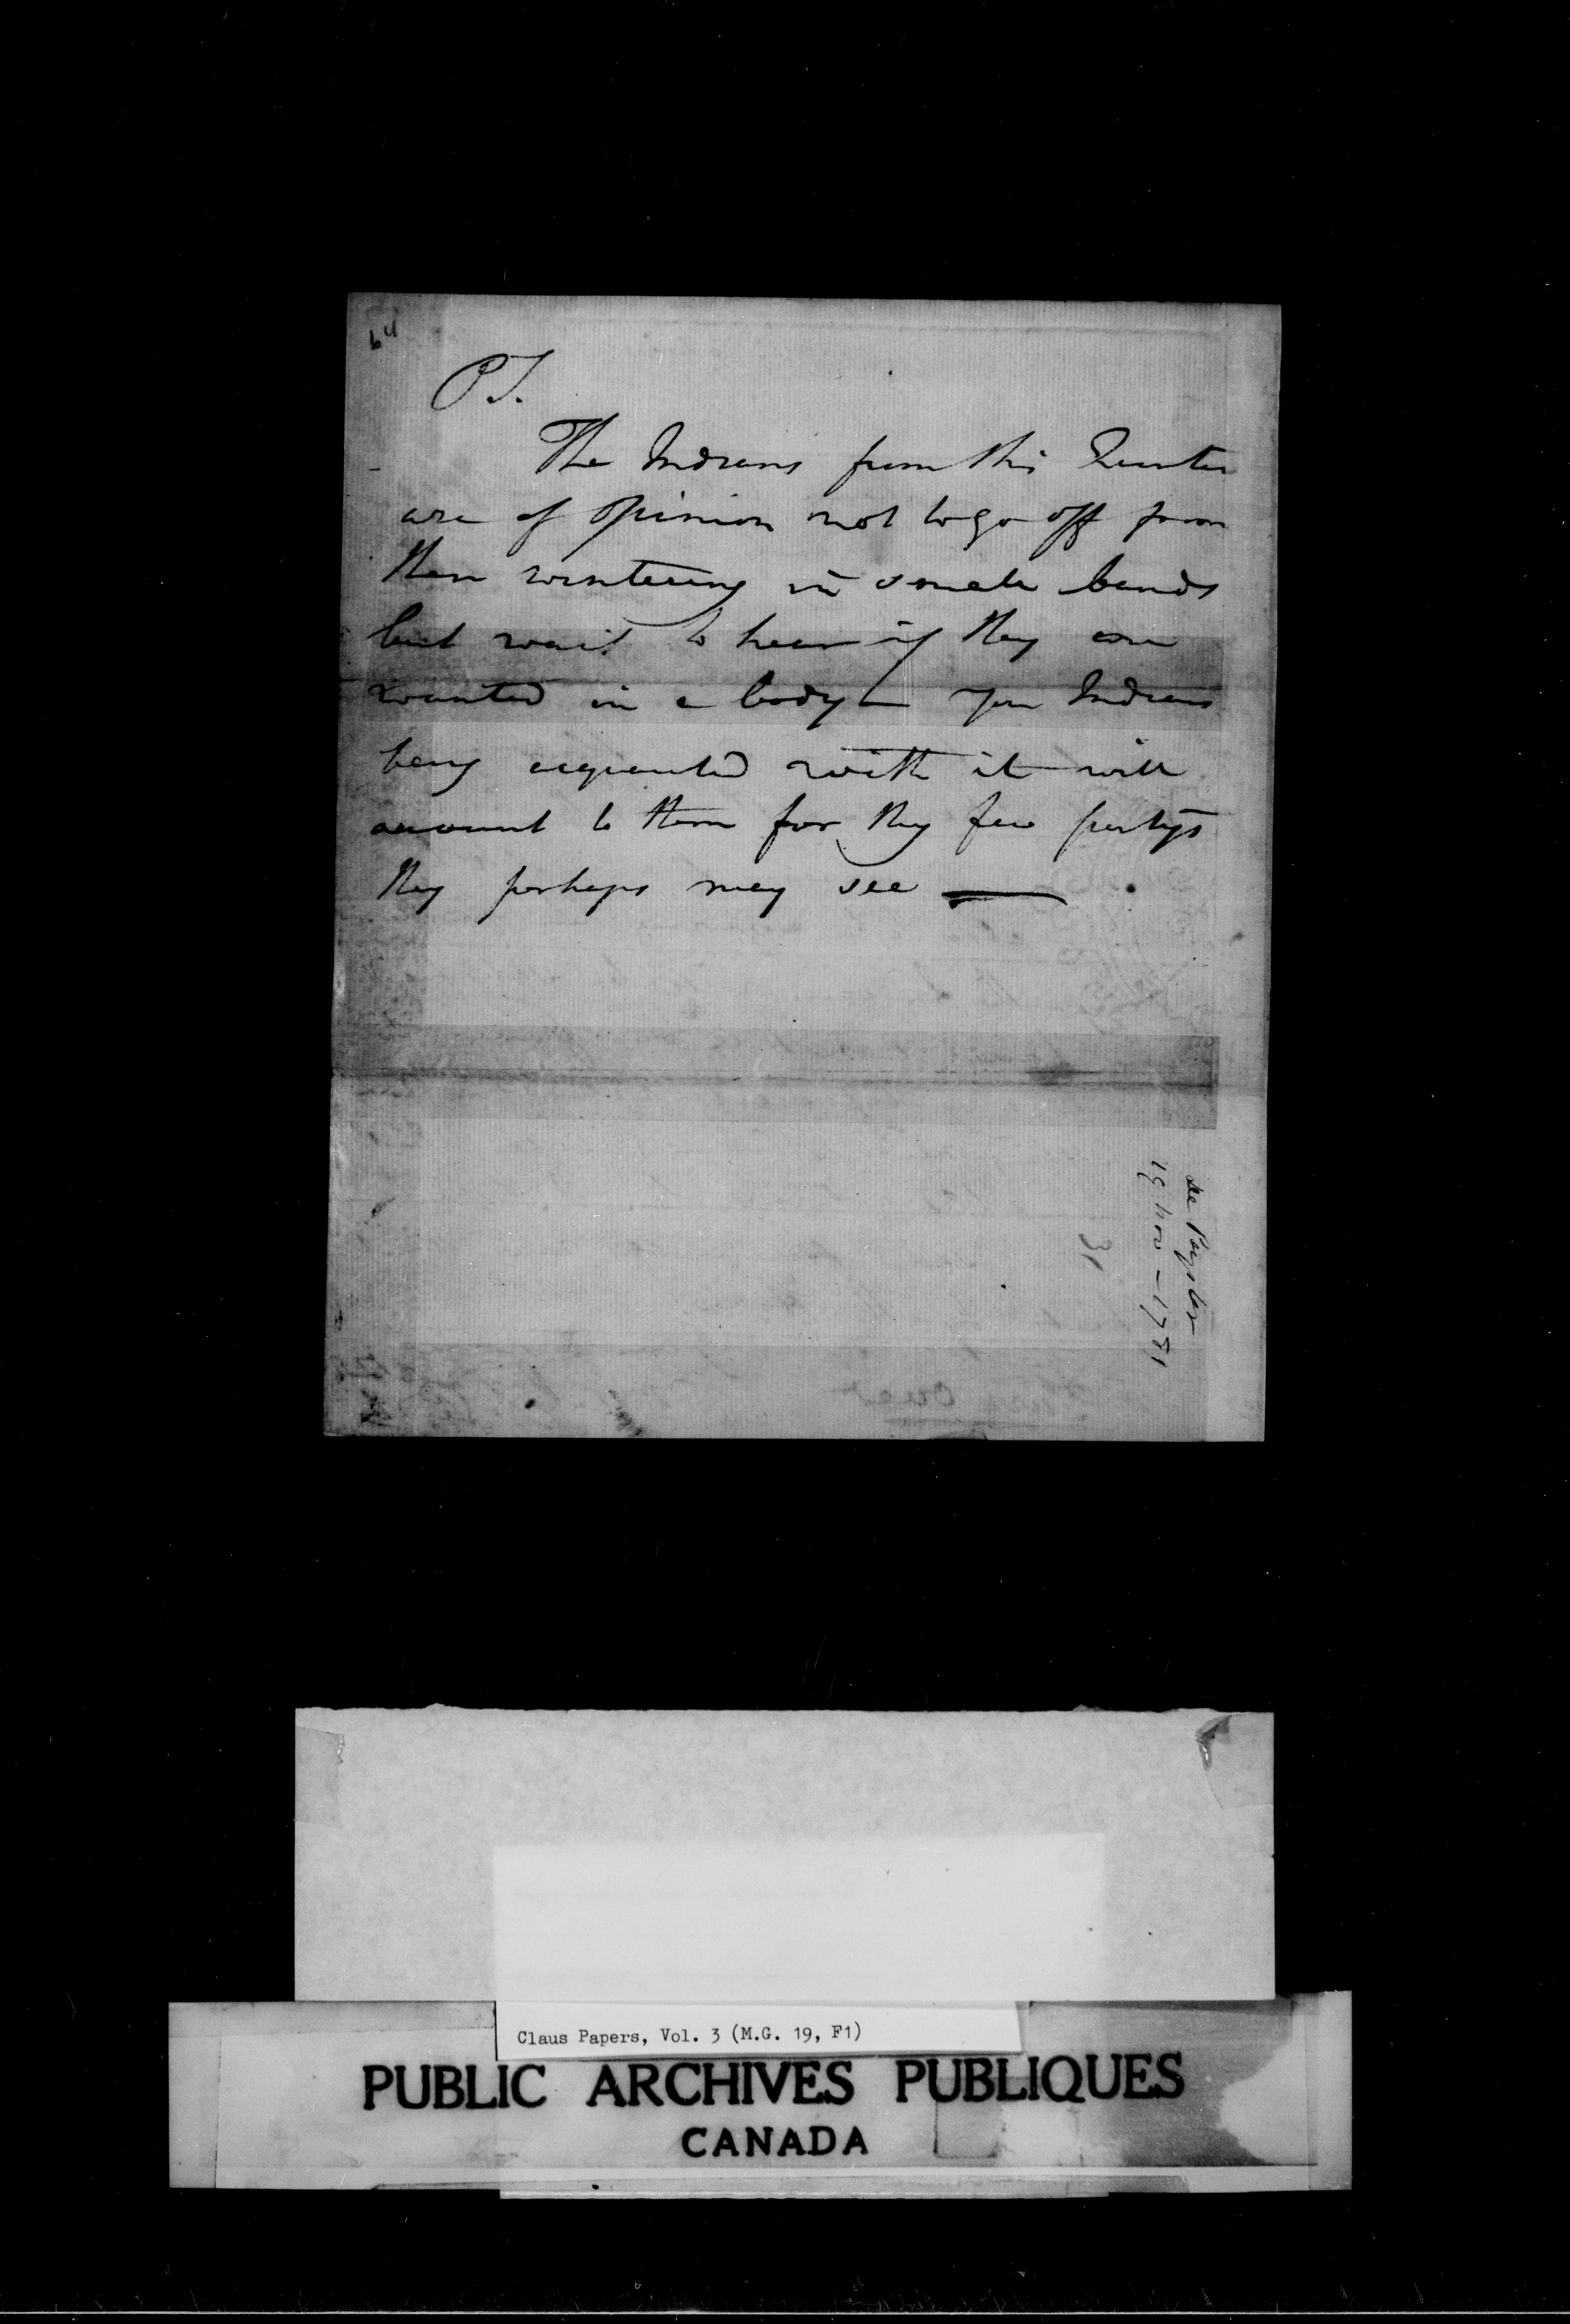 64
P.S.
The Indians from this Quarter
are of Opinion not to go off from
their wintering in small bands
but wait to hear if they are
wanted in a body — your Indians
being acquainted with it will
account to them for the few partys
they perhaps may see —
De Peyster
15 Nov — 1781
31
over
Claus Papers, Vol. 3 (M.G. 19, F1)
PUBLIC ARCHIVES PUBLIQUES
CANADA